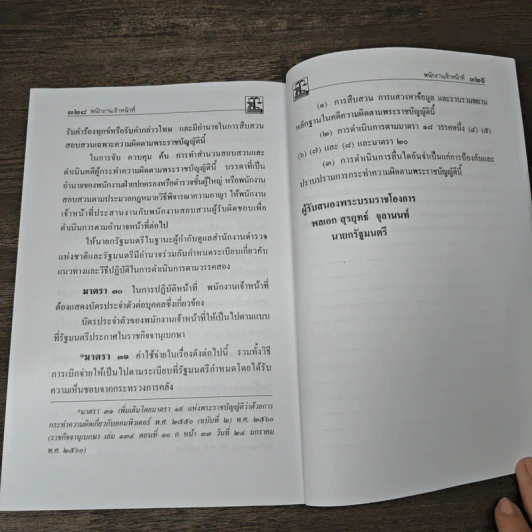 ๓๒๘ พนักงานเจ้าหน้าที่
รับคำร้องทุกข์หรือรับคำกล่าวโทษ และมีอำนาจในการสืบสวน
สอบสวนเฉพาะความผิดตามพระราชบัญญัตินี้
ในการจับ ควบคุม ค้น การทำสำนวนสอบสวนและ
ดำเนินคดีผู้กระทำความผิดตามพระราชบัญญัตินี้ บรรดาที่เป็น
อำนาจของพนักงานฝ่ายปกครองหรือตำรวจชั้นผู้ใหญ่ หรือพนักงาน
สอบสวนตามประมวลกฎหมายวิธีพิจารณาความอาญา ให้พนักงาน
เจ้าหน้าที่ประสานงานกับพนักงานสอบสวนผู้รับผิดชอบเพื่อ
ดำเนินการตามอำนาจหน้าที่ต่อไป
ให้นายกรัฐมนตรีในฐานะผู้กำกับดูแลสำนักงานตำรวจ
แห่งชาติและรัฐมนตรีมีอำนาจร่วมกันกำหนดระเบียบเกี่ยวกับ
แนวทางและวิธีปฏิบัติในการดำเนินการตามวรรคสอง
มาตรา ๓๐ ในการปฏิบัติหน้าที่ พนักงานเจ้าหน้าที่
ต้องแสดงบัตรประจำตัวต่อบุคคลซึ่งเกี่ยวข้อง
บัตรประจำตัวของพนักงานเจ้าหน้าที่ให้เป็นไปตามแบบ
ที่รัฐมนตรีประกาศในราชกิจจานุเบกษา
*มาตรา ๓๑ ค่าใช้จ่ายในเรื่องดังต่อไปนี้ รวมทั้งวิธี
การเบิกจ่ายให้เป็นไปตามระเบียบที่รัฐมนตรีกำหนดโดยได้รับ
ความเห็นชอบจากกระทรวงการคลัง
*มาตรา ๓๑ เพิ่มเติมโดยมาตรา ๑๙ แห่งพระราชบัญญัติว่าด้วยการ
กระทำความผิดเกี่ยวกับคอมพิวเตอร์ พ.ศ. ๒๕๕๐ (ฉบับที่ ๒) พ.ศ. ๒๕๖๐
(ราชกิจจานุเบกษา เล่ม ๑๓๔ ตอนที่ ๑๐ ก หน้า ๓๓ วันที่ ๒๔ มกราคม
พ.ศ. ๒๕๖๐)
พนักงานเจ้าหน้าที่ ๓๒๙
(๑) การสืบสวน การแสวงหาข้อมูล และรวบรวมพยาน
หลักฐานในคดีความผิดตามพระราชบัญญัตินี้
(๒) การดำเนินการตามมาตรา ๑๘ วรรคหนึ่ง (๔) (๕)
(๖) (๗) และ (๘) และมาตรา ๒๐
(๓) การดำเนินการอื่นใดอันจำเป็นแก่การป้องกันและ
ปราบปรามการกระทำความผิดตามพระราชบัญญัตินี้
ผู้รับสนองพระบรมราชโองการ
พลเอก สุรยุทธ์ จุลานนท์
นายกรัฐมนตรี